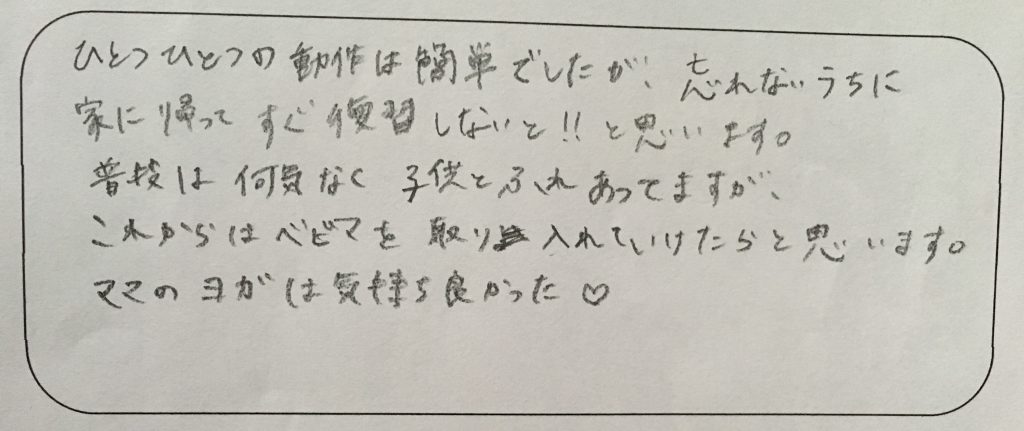 ひとつひとつの動作は簡単でしたが、忘れないうちに
家に帰ってすぐ復習しないと!!と思います。
普技は何気なく子供とふれあってますが、
これからはベビマを取り入れていけたらと思います。
ママのヨガは気持ち良かった♡